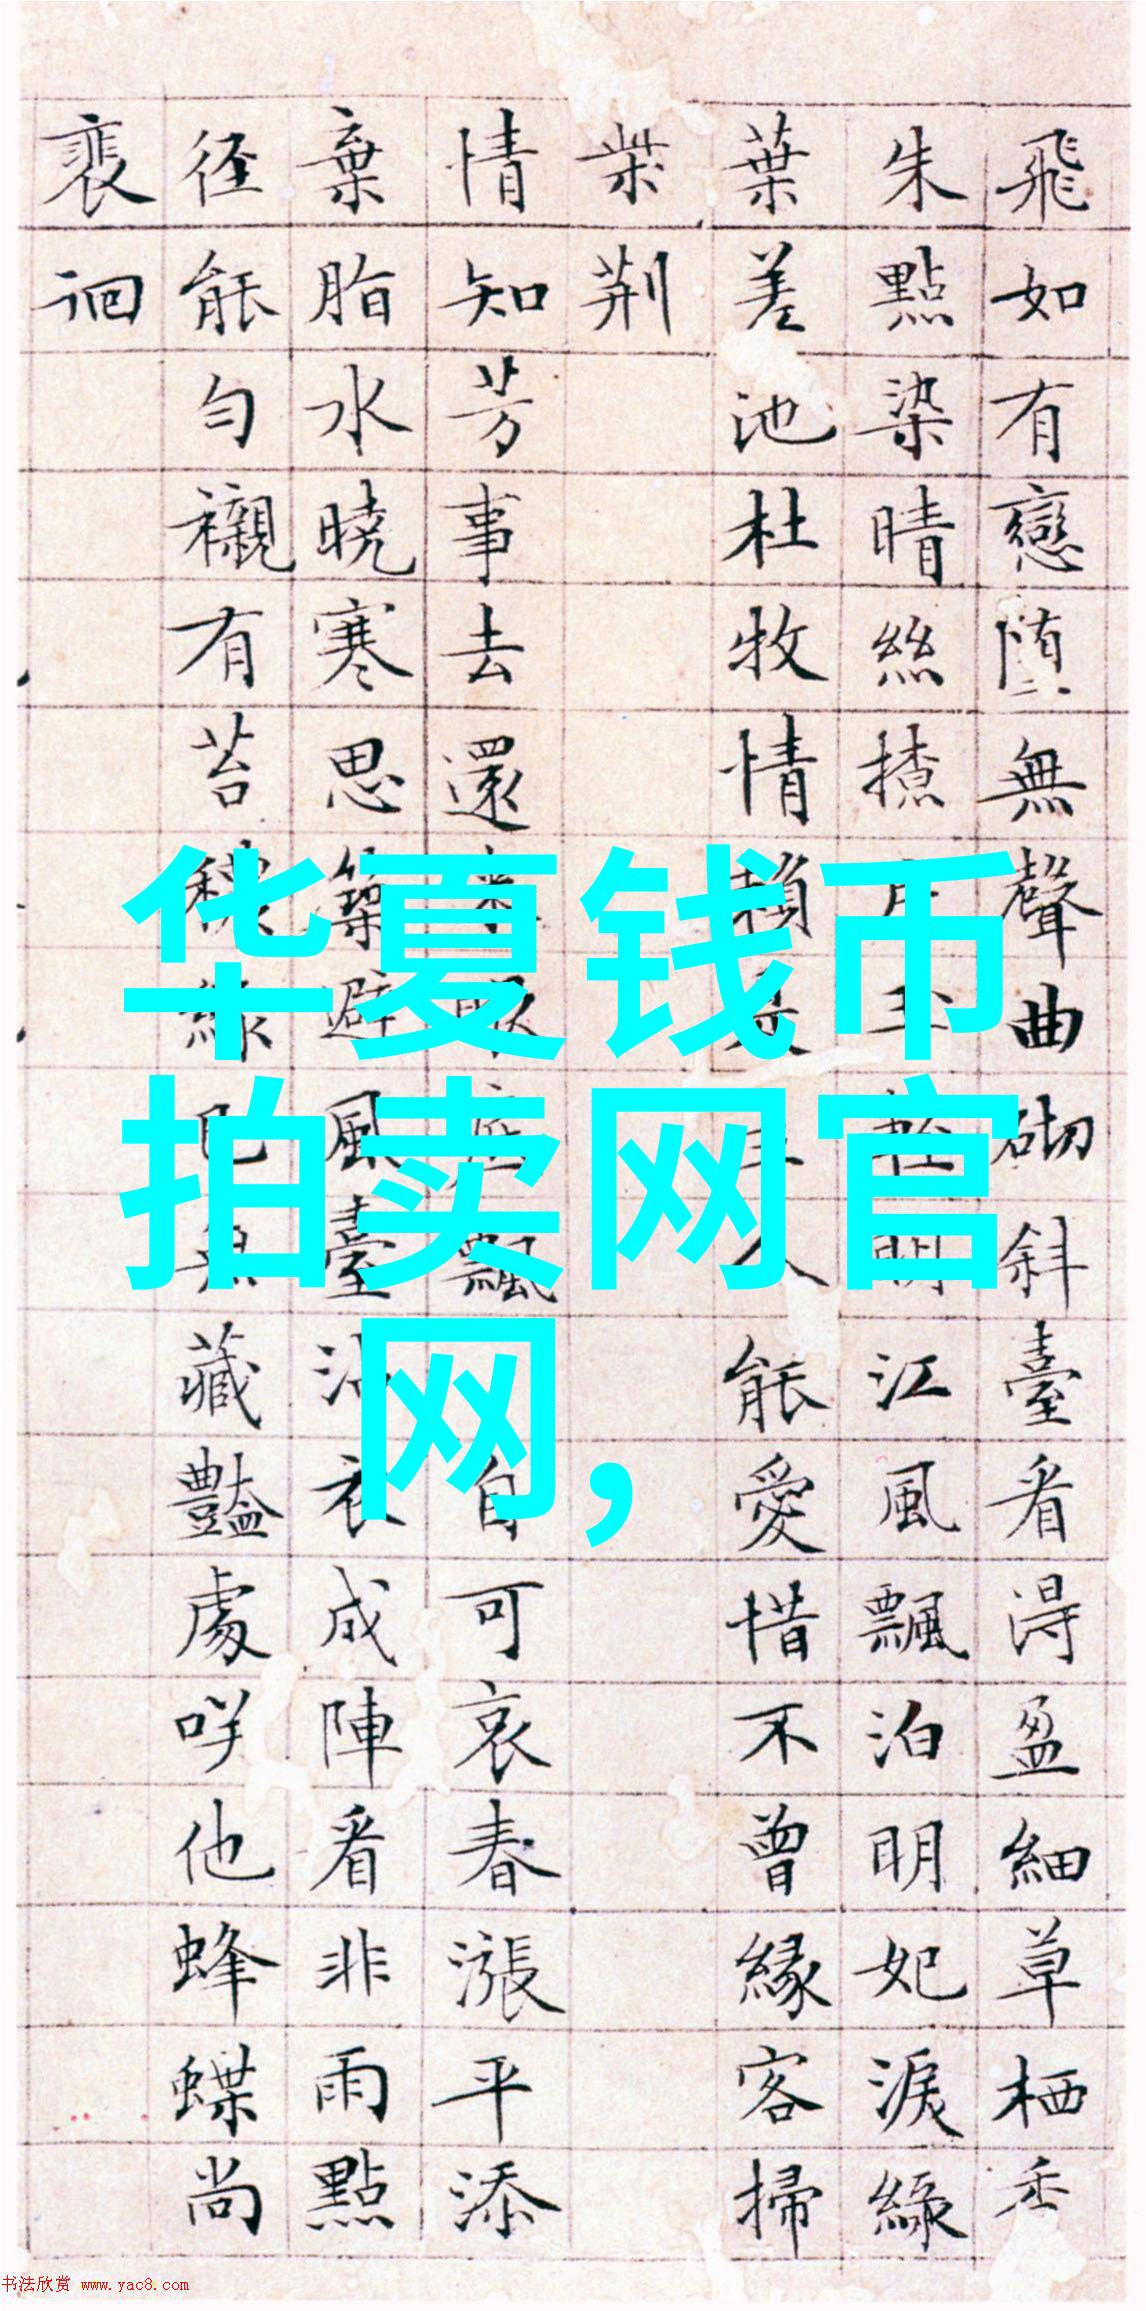 飛如有戀堕無聲曲砌斜臺看淂盈細草栖香
朱點染晴絲揸江風飄泊明妃淚綠
葉差池杜牧情賴能愛惜不曾緣客掃
柴荆
情知芳事去還飄自可哀春漲平添
棄脂水曉寒思築避風臺沾衣成陣看非雨點
径能勻襯有苔穠綠已無藏豔處咲他蜂蝶尚
裵徊
华夏钱币
拍卖网官
网，
书法欣赏 www.yac8.com